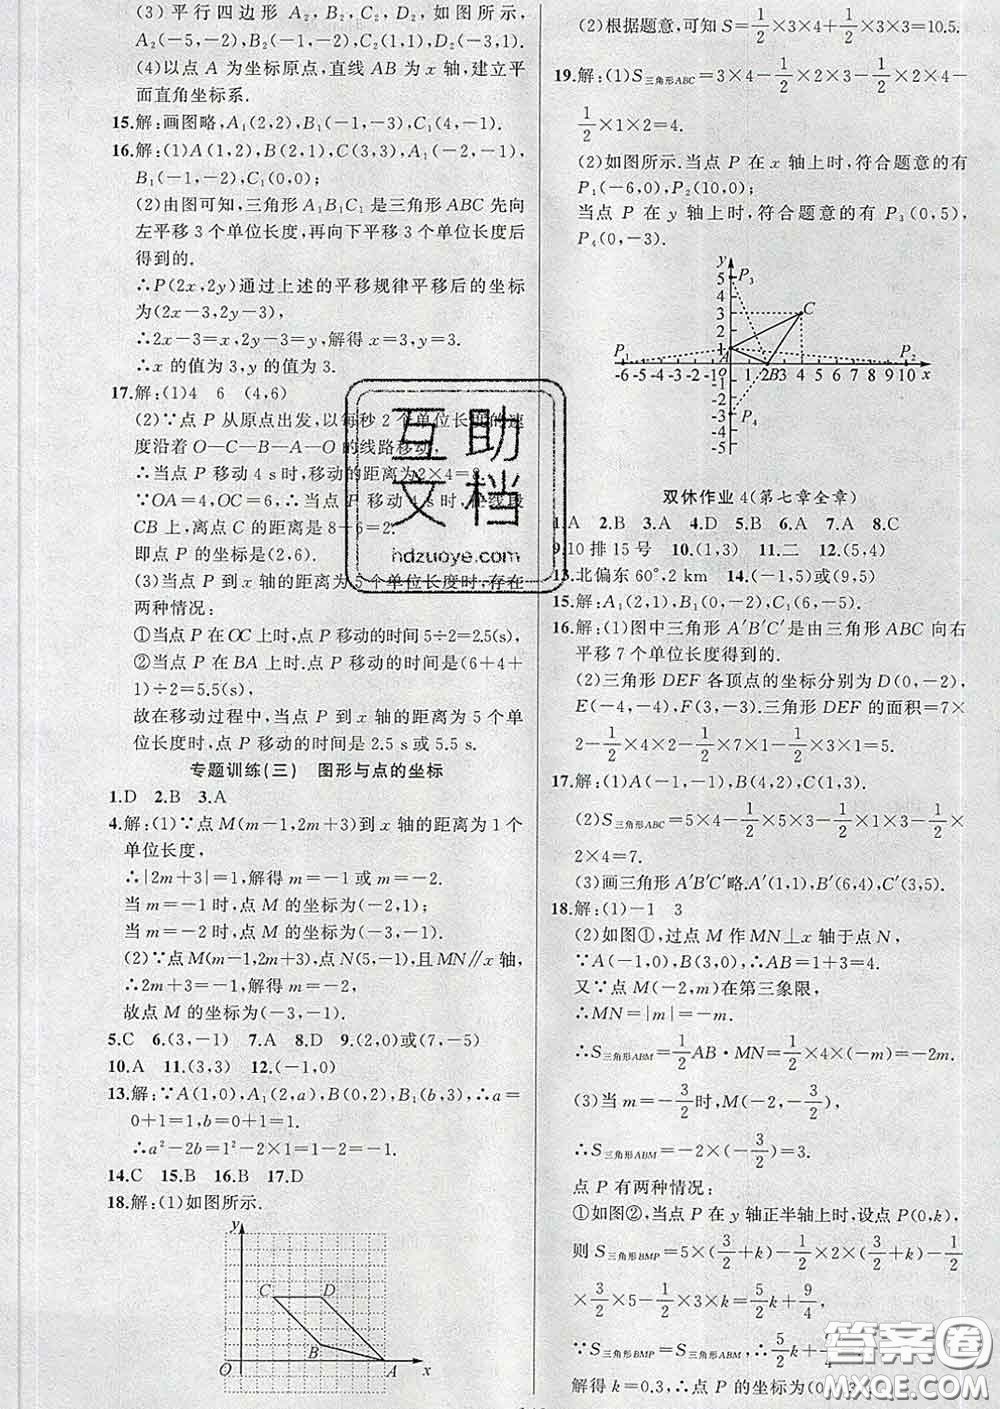 (3)平行四边形 A₂B₂C₂D₂ 如图所示,
A₂(-5,-2),B₂(-1,-2),C₂(1,1),D₂(-3,1).
(4)以点 A 为坐标原点,直线 AB 为 x 轴,建立平
面直角坐标系.
15.解:画图略,A₁(2,2),B₁(-1,-3),C₁(4,-1).
16.解:(1)A(1,2),B(2,1),C(3,3),A₁(-2,-1),
B₁(-1,-2),C₁(0,0);
(2)由图可知,三角形 A₁B₁C₁ 是三角形 ABC 先向
左平移 3 个单位长度,再向下平移 3 个单位长度后
得到的.
∴P(2x,2y)通过上述的平移规律平移后的坐标
为(2x-3,2y-3),
∴2x-3=x,2y-3=y,解得 x=3,y=3.
∴x 的值为 3,y 的值为 3.
17.解:(1)4 6 (4,6)
(2)∵点 P 从原点出发,以每秒 2 个单位长度的速
度沿着 O—C—B—A—O 的线路移动,
∴当点 P 移动 4 s 时,移动的距离为 2×4=8.
∵OA=4,OC=6,∴当点 P 移动 4 s 时,在线段
CB 上,离点 C 的距离为 8-6=2.
即点 P 的坐标是(2,6).
(3)当点 P 到 x 轴的距离为 5 个单位长度时,存在
两种情况:
①当点 P 在 OC 上时,点 P 移动的时间 5÷2=2.5(s),
②当点 P 在 BA 上时.点 P 移动的时间是(6+4+
1)÷2=5.5(s),
故在移动过程中,当点 P 到 x 轴的距离为 5 个单
位长度时,点 P 移动的时间是 2.5 s 或 5.5 s.
专题训练(三) 图形与点的坐标
1.D 2.B 3.A
4.解:(1)∵点 M(m-1,2m+3)到 x 轴的距离为 1 个
单位长度,
∴|2m+3|=1,解得 m=-1 或 m=-2.
当 m=-1 时,点 M 的坐标为(-2,1);
当 m=-2 时,点 M 的坐标为(-3,-1).
(2)∵点 M(m-1,2m+3),点 N(5,-1),且 MN∥x 轴,
∴2m+3=-1,解得 m=-2,
故点 M 的坐标为(-3,-1).
5.C 6.(3,-1) 7.A 8.D 9.(2,0)或(7,-5)
10.A 11.(3,3) 12.(-1,0)
13.解:∵A(1,0),A₁(2,a),B(0,2),B₁(b,3),∴a=
0+1=1,b=0+1=1.
∴a²-2b=1²-2×1=1-2=-1.
14.C 15.B 16.B 17.D
18.解:(1)如图所示.
y
C D
B
O A x
(2)根据题意,可知 S=1/2×3×4+1/2×3×3=10.5.
19.解:(1)S三角形ABC=3×4-1/2×2×3-1/2×2×4-
1/2×1×2=4.
(2)如图所示.当点 P 在 x 轴上时,符合题意的有
P₁(-6,0),P₂(10,0);
当点 P 在 y 轴上时,符合题意的有 P₃(0,5),
P₄(0,-3).
y
5 P₃
4
3 C
2
P₁ 1 A B P₂
-6 -5 -4 -3 -2 -1 O 1 2 3 4 5 6 7 8 9 10 x
-1
-2
-3 P₄
-4
-5
双休作业 4(第七章全章)
1.A 2.B 3.A 4.D 5.B 6.A 7.A 8.C
9.10 排 15 号 10.(1,3) 11.二 12.(5,4)
13.北偏东 60°,2 km 14.(-1,5)或(9,5)
15.解:A₁(2,1),B₁(0,-2),C₁(6,-5).
16.解:(1)图中三角形 A′B′C′是由三角形 ABC 向右
平移 7 个单位长度得到的.
(2)三角形 DEF 各顶点的坐标分别为 D(0,-2),
E(-4,-4),F(3,-3).三角形 DEF 的面积=7×
2-1/2×4×2-1/2×7×1-1/2×3×1=5.
17.解:(1)A(-1,-1),B(4,2),C(1,3).
(2)S三角形ABC=5×4-1/2×5×3-1/2×3×1-1/2×
2×4=7.
(3)画三角形 A′B′C′略.A′(1,1),B′(6,4),C′(3,5).
18.解:(1)-1 3
(2)如图①,过点 M 作 MN⊥x 轴于点 N,
∵A(-1,0),B(3,0),∴AB=1+3=4.
又∵点 M(-2,m)在第三象限,
∴MN=|m|=-m.
∴S三角形ABM=1/2AB·MN=1/2×4×(-m)=-2m.
(3)当 m=-3/2时,M(-2,-3/2),
∴S三角形ABM=-2×(-3/2)=3.
点 P 有两种情况:
①如图②,当点 P 在 y 轴正半轴上时,设点 P(0,k),
则 S三角形BMP=5×(3/2+k)-1/2×2×(3/2+k)-1/2
×3/2×5-1/2×3×k=5/2k+9/4,
∵S三角形BMP=S三角形ABM,∴5/2k+9/4=3,
解得 k=0.3,∴点 P 的坐标为(0,0.3).
互助
文档
hdzuoye.com
答案圈
MXQE.COM